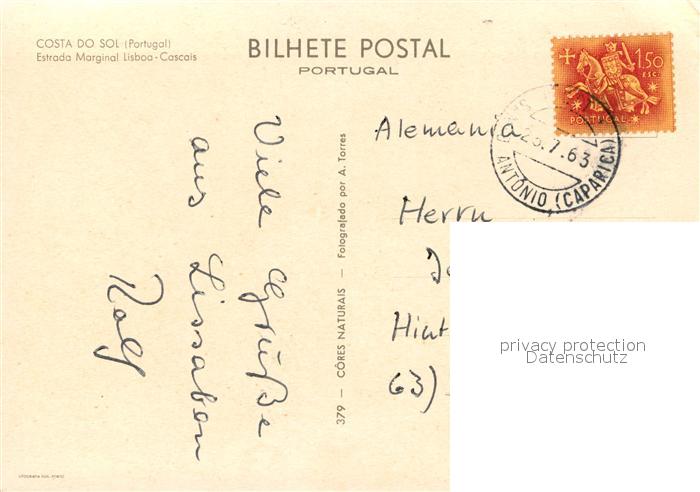 COSTA DO SOL (Portugal)
Estrada Marginal Lisboa-Cascais
BILHETE POSTAL
PORTUGAL
1$50
ESC.
PORTUGAL
23.7.63
ANTÓNIO (CAPARICA)
Viele Grüße
aus Lissabon
Rolf
379 — CÔRES NATURAIS — Fotografado por A. Torres
Alemania
Herrn
Hint
63)
privacy protection
Datenschutz